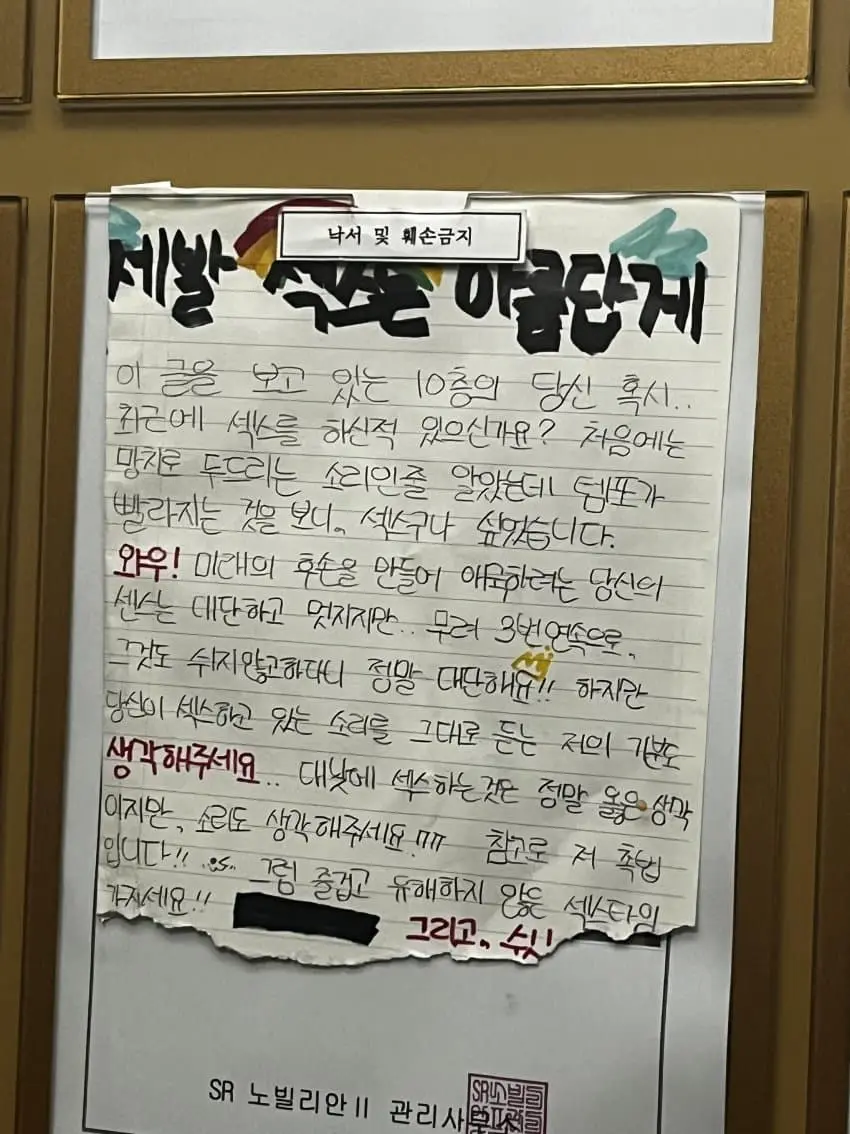 낙서 및 훼손금지
제발 섹스는 아콤단계
이 글을 보고 있는 10층의 당신 혹시..
최근에 섹스를 하신적 있으신가요? 처음에는
망치로 두드리는 소리인줄 알았는데 템포가
빨라지는 것을 보니. 섹스구나 싶었습니다.
와우! 미래의 후손을 만들어 애국하려는 당신의
센스는 대단하고 멋지지만.. 무려 3번연속으로.
그것도 쉬지않고하다니 정말 대단해요!! 하지만
당신이 섹스하고 있는 소리를 그대로 듣는 저의 기분도
생각해주세요.. 대낮에 섹스하는것은 정말 옳은생각
이지만, 소리도 생각해주세요!ㅠㅠ 참고로 저 촉법
입니다!! .. 그럼 즐겁고 유해하지 않은 섹스타임
가지세요!! 그리고, 쉿!!
SR 노빌리안II 관리사무소